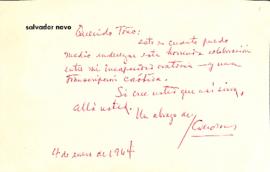 salvador novo
Querido Toño:
esto es cuanto puedo
medio enderezar esta horrenda celebración
entre mi incapacidad oratoria — y una
transcripción caótica.
Si cree usted que así sirve,
allá usted.
Un abrazo de
4 de enero de 1967